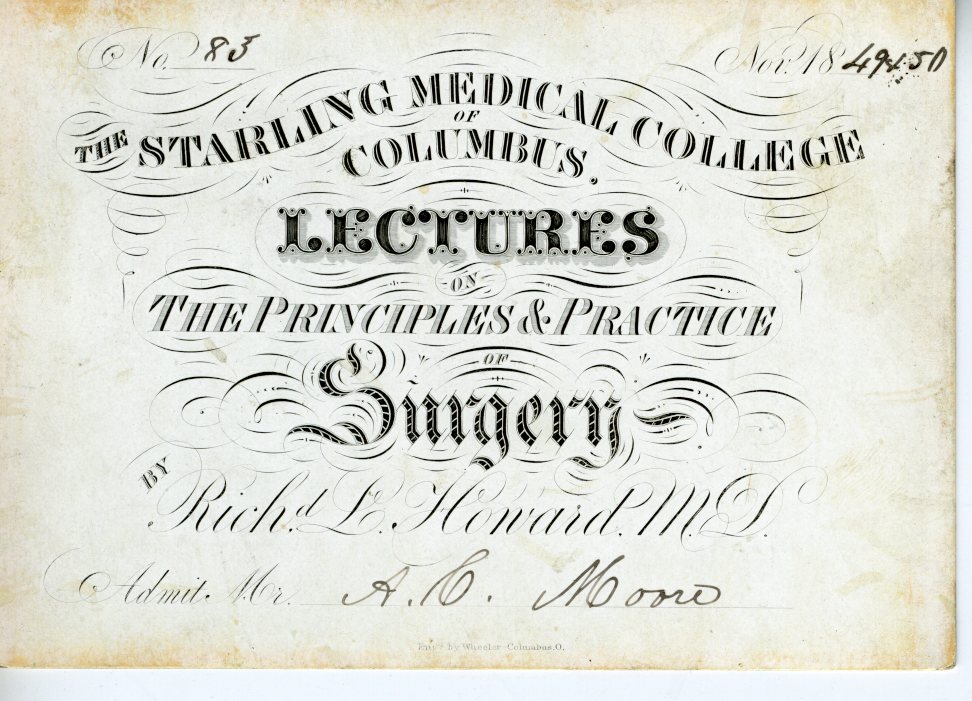 No. 83 Nov. 1849 & 50
THE STARLING MEDICAL COLLEGE
OF
COLUMBUS,
LECTURES
ON
THE PRINCIPLES & PRACTICE
OF
Surgery
BY
Richd. L. Howard. M.D.
Admit Mr. A. C. Moore
by Wheeler Columbus, O.